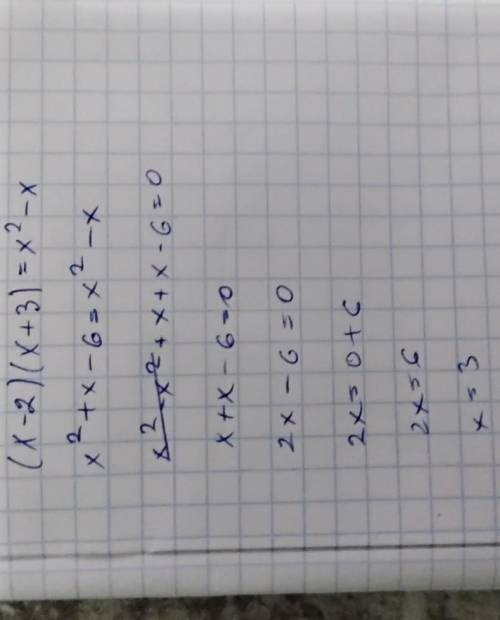 (x-2)(x+3)=x²-x
x²+x-6=x²-x
x²-x²+x+x-6=0
x+x-6=0
2x-6=0
2x=0+6
2x=6
x=3